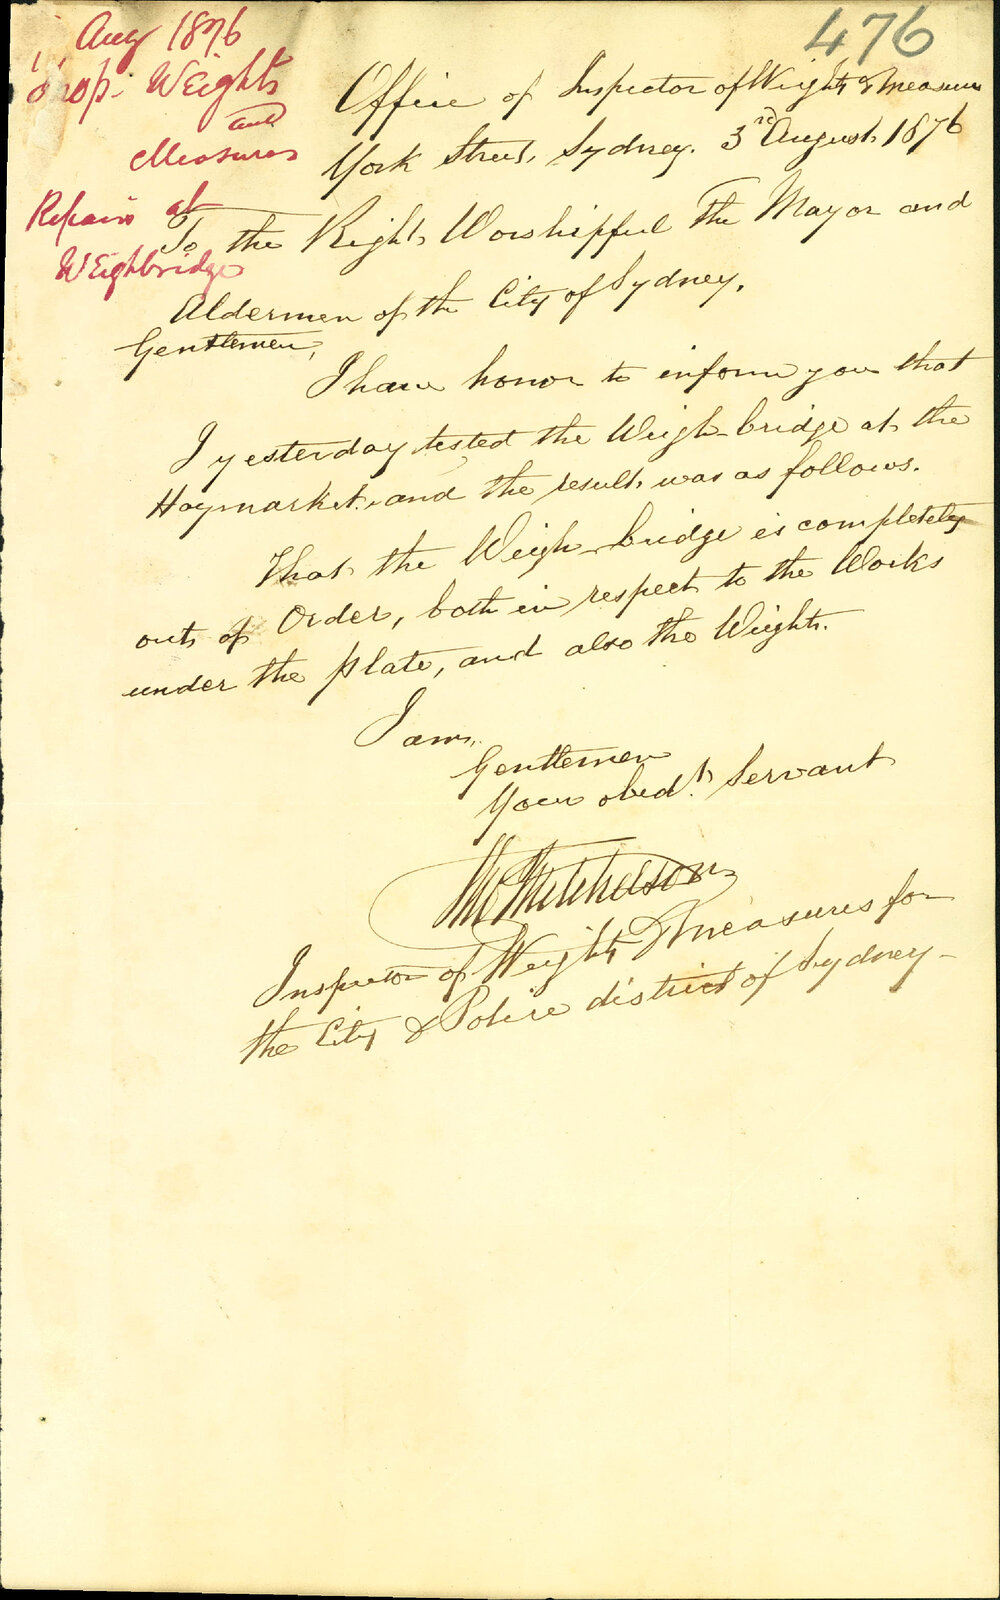 476
Aug 1876
Weights
and
Measures
Repairs at
Weighbridge
Office of Inspector of Weights & Measures
York Street, Sydney. 3rd August 1876
To the Right Worshipful The Mayor and
Aldermen of the City of Sydney.
Gentlemen,
I have honor to inform you that
I yesterday tested the Weigh-bridge at the
Haymarket, and the result was as follows.
That the Weigh-bridge is completely
out of Order, both in respect to the Works
under the plate, and also the Weights.
I am,
Gentlemen
Your obedt. Servant
Inspector of Weights & Measures for
the City & Police district of Sydney-